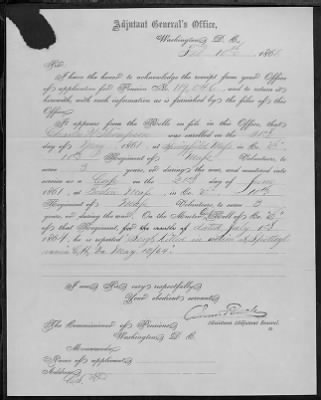 Adjutant General's Office,
Washington, D. C.,
Feb 186
Sir:
I have the honor to acknowledge the receipt from your Office
of application for Pension No. and to return it
herewith, with such information as is furnished by the files of this
Office.
It appears from the Rolls on file in this Office, that
was enrolled on the
day of May 1861, at Springfield Mass in Co.
10th Regiment of Mass Volunteers, to
serve 3 years, or during the war, and mustered into
service as a Corp on the 21st day of June
1861, at Boston Mass, in Co. 10th
Regiment of Mass Volunteers, to serve 3
years, or during the war. On the Muster Roll of Co.
of that Regiment, for the months of dated July 1st
1864, he is reported killed in action at Spottsyl
vania C.H. Va May 12/64"
I am, Sir, very respectfully,
Your obedient servant,
Assistant Adjutant General.
The Commissioner of Pensions,
Washington, D. C.
Memoranda:
Name of applicant,
Address,